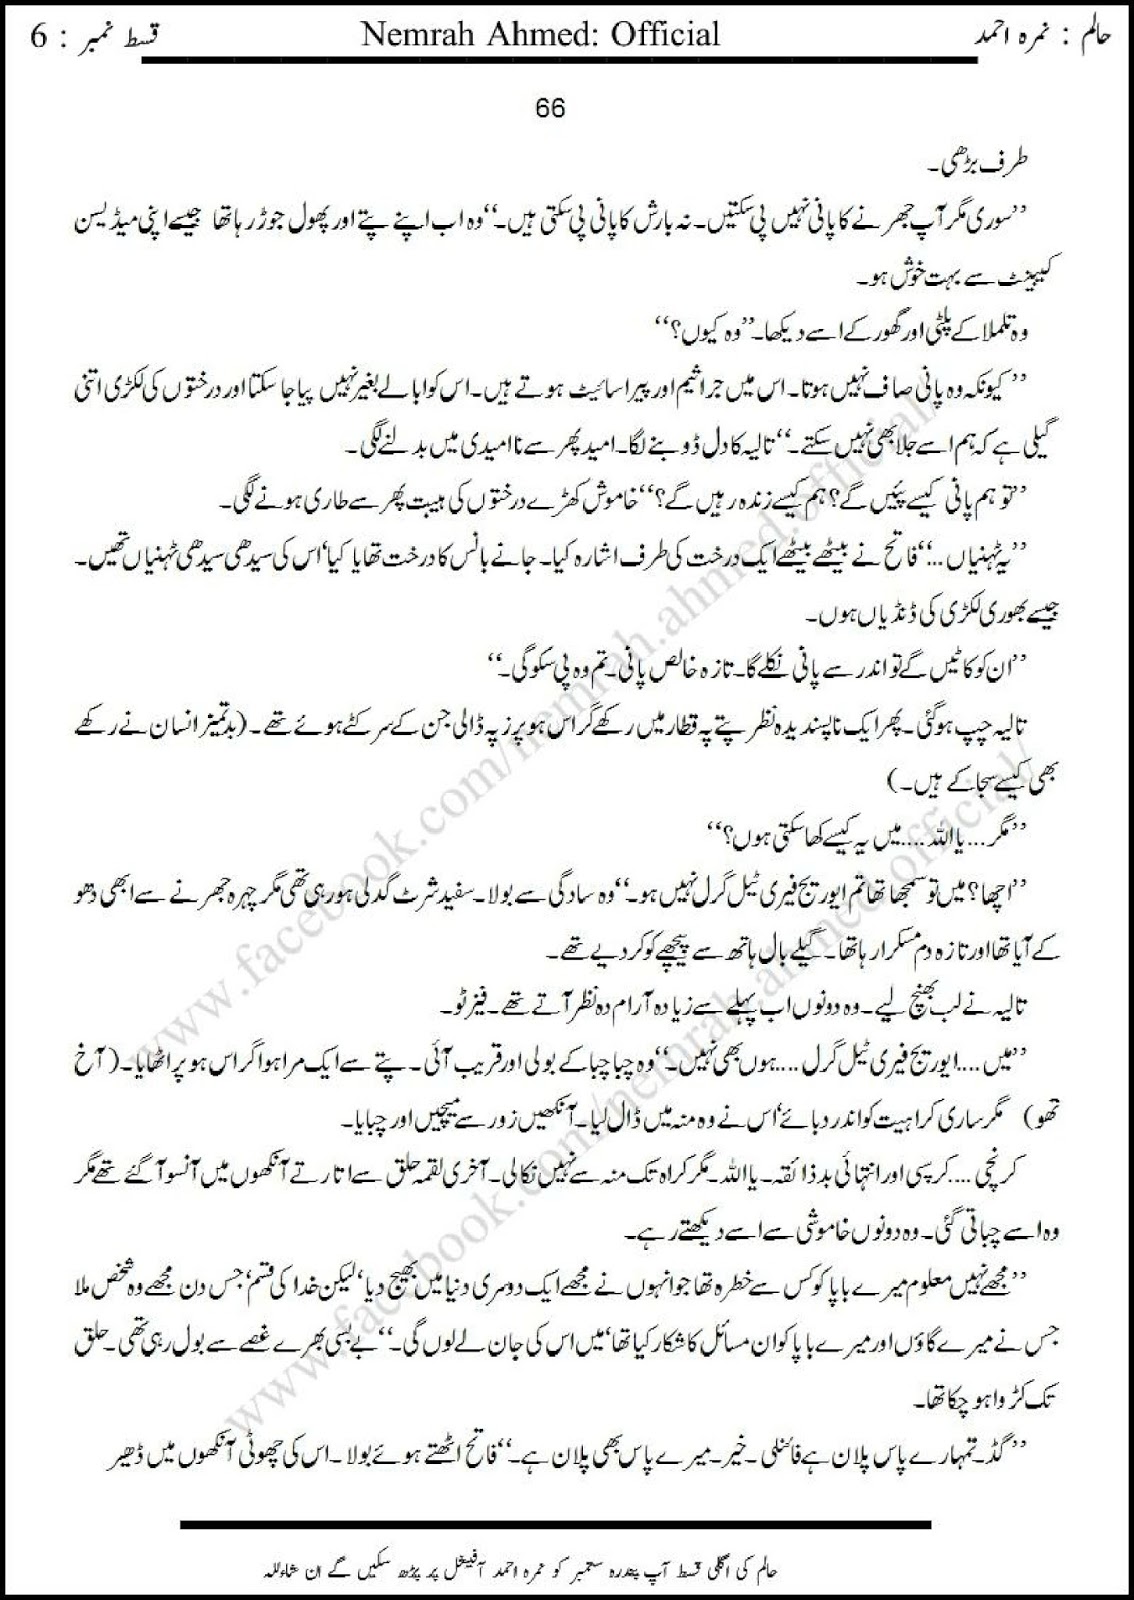 حالم : نمرہ احمد
Nemrah Ahmed: Official
قسط نمبر : 6
66
طرف بڑھی۔
’’سوری مگر آپ جھرنے کا پانی نہیں پی سکتیں۔ نہ بارش کا پانی پی سکتی ہیں۔‘‘ وہ اب اپنے پتے اور پھول جوڑ رہا تھا جیسے اپنی میڈیسن
کیبینٹ سے بہت خوش ہو۔
وہ تلملا کے پلٹی اور گھور کے اسے دیکھا۔ ’’وہ کیوں؟‘‘
’’کیونکہ وہ پانی صاف نہیں ہوتا۔ اس میں جراثیم اور پیراسائیٹ ہوتے ہیں۔ اس کو ابالے بغیر نہیں پیا جا سکتا اور درختوں کی لکڑی اتنی
گیلی ہے کہ ہم اسے جلا بھی نہیں سکتے۔‘‘ تالیہ کا دل ڈوبنے لگا۔ امید پھر سے ناامیدی میں بدلنے لگی۔
’’تو ہم پانی کیسے پئیں گے؟ ہم کیسے زندہ رہیں گے؟‘‘ خاموش کھڑے درختوں کی ہیبت پھر سے طاری ہونے لگی۔
’’یہ ٹہنیاں...‘‘ فاتح نے بیٹھے بیٹھے ایک درخت کی طرف اشارہ کیا۔ جانے بانس کا درخت تھا یا کیا‘ اس کی سیدھی سیدھی ٹہنیاں تھیں۔
جیسے بھوری لکڑی کی ڈنڈیاں ہوں۔
’’ان کو کاٹیں گے تو اندر سے پانی نکلے گا۔ تازہ خالص پانی۔ تم وہ پی سکو گی۔‘‘
تالیہ چپ ہو گئی۔ پھر ایک ناپسندیدہ نظر پتے پہ قطار میں رکھے گراس ہوپرز پہ ڈالی جن کے سر کٹے ہوئے تھے۔ (بدتمیز انسان نے رکھے
بھی کیسے سجا کے ہیں۔)
’’مگر... یا اللہ.... میں یہ کیسے کھا سکتی ہوں؟‘‘
’’اچھا؟ میں تو سمجھا تھا تم ایوریج فیری ٹیل گرل نہیں ہو۔‘‘ وہ سادگی سے بولا۔ سفید شرٹ گدلی ہو رہی تھی مگر چہرہ جھرنے سے ابھی دھو
کے آیا تھا اور تازہ دم مسکرا رہا تھا۔ گیلے بال ہاتھ سے پیچھے کو کر دیے تھے۔
تالیہ نے لب بھینچ لیے۔ وہ دونوں اب پہلے سے زیادہ آرام دہ نظر آتے تھے۔ فیز ٹو۔
’’میں.... ایوریج فیری ٹیل گرل.... ہوں بھی نہیں۔‘‘ وہ چبا چبا کے بولی اور قریب آئی۔ پتے سے ایک مرا ہوا گراس ہوپر اٹھایا۔ (آخ
تھو) مگر ساری کراہیت کو اندر دبائے‘ اس نے وہ منہ میں ڈال لیا۔ آنکھیں زور سے میچیں اور چبایا۔
کرنچی.... کرسپی اور انتہائی بدذائقہ۔ یا اللہ۔ مگر کراہ تک منہ سے نہیں نکالی۔ آخری لقمہ حلق سے اتارتے آنکھوں میں آنسو آ گئے تھے مگر
وہ اسے چباتی گئی۔ وہ دونوں خاموشی سے اسے دیکھتے رہے۔
’’مجھے نہیں معلوم میرے باپا کو کس سے خطرہ تھا جو انہوں نے مجھے ایک دوسری دنیا میں بھیج دیا‘ لیکن خدا کی قسم‘ جس دن مجھے وہ شخص ملا
جس نے میرے گاؤں اور میرے باپا کو ان مسائل کا شکار کیا تھا‘ میں اس کی جان لے لوں گی۔‘‘ بے بسی بھرے غصے سے بول رہی تھی۔ حلق
تک کڑوا ہو چکا تھا۔
’’گڈ۔ تمہارے پاس پلان ہے فائنلی۔ خیر۔ میرے پاس بھی پلان ہے۔‘‘ فاتح اٹھتے ہوئے بولا۔ اس کی چھوٹی آنکھوں میں ڈھیر
حالم کی اگلی قسط آپ پندرہ ستمبر کو نمرہ احمد آفیشل پر پڑھ سکیں گے ان شاءللہ
www.facebook.com/nemrah.ahmed.official/
www.facebook.com/nemrah.ahmed.official/